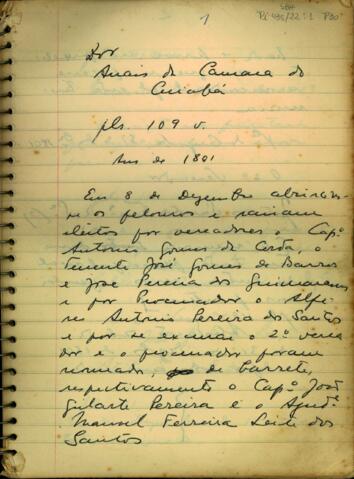 1
SBH
Pi 436/22:1 P30
Dos
Anais da Camara do
Cuiabá
fls. 109 v.
Ano de 1801
Em 8 de Dezembro abriram-
se os pelouros e sairam
eleitos por vereadores o Capº
Antonio Gomes da Costa, o
tenente José Gomes de Barros
e José Pereira dos Guimaraens
e por Procurador o Alfe-
res Antonio Pereira dos Santos
e por se excusar o 2º verea-
dor e o procurador foram
nomeados, de barrete,
respectivamente o Capº João
Gularte Pereira e o Ajudº
Manuel Ferreira Leite dos
Santos